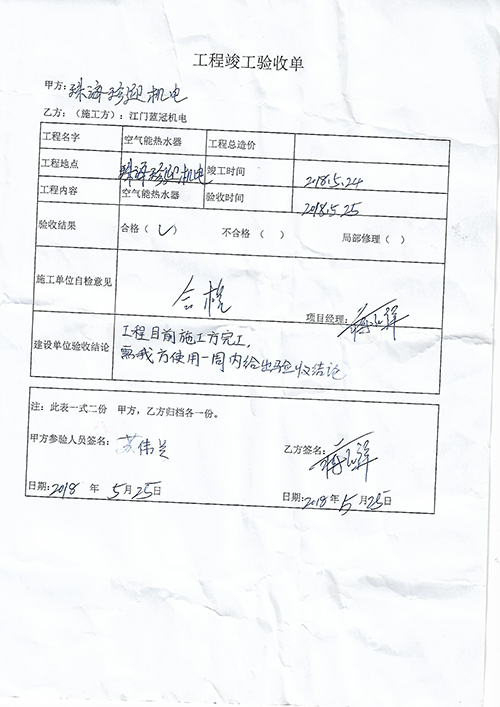 工程竣工验收单
甲方：珠海珍迎机电
乙方：（施工方）：江门蓝冠机电
工程名字 空气能热水器 工程总造价
工程地点 珠海珍迎机电 竣工时间 2018.5.24
工程内容 空气能热水器 验收时间 2018.5.25
验收结果 合格（✓） 不合格（ ） 局部修理（ ）
施工单位自检意见 合格 项目经理：
建设单位验收结论 工程目前施工方完工，
需我方使用一周内给出验收结论
注：此表一式二份 甲方，乙方归档各一份。
甲方参验人员签名：苏伟兰 乙方签名：
日期：2018 年 5月25日 日期：2018年5月25日